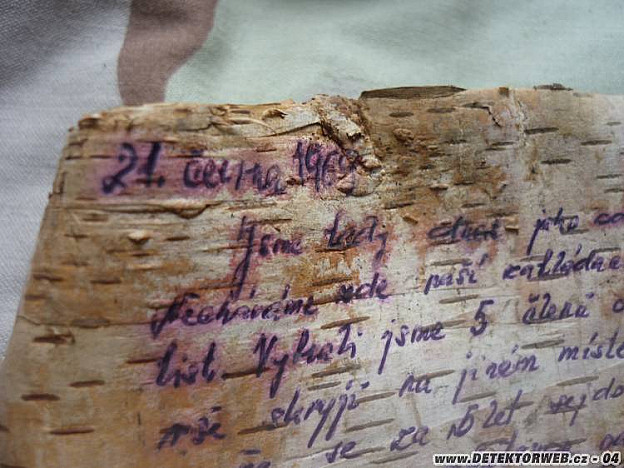 21. června 1969
Jsme tady dnes jako
Necháváme zde naší zakládac
list. Vybrali jsme 5 členů
skryjí na jiném míste
se za 5 let
www.DETEKTORWEB.cz - 04